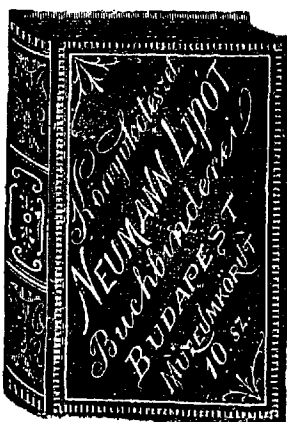 Könyvkötészet
NEUMANN LIPÓT
Buchbinderei
BUDAPEST
MUZEUMKÖRÚT
10. SZ.